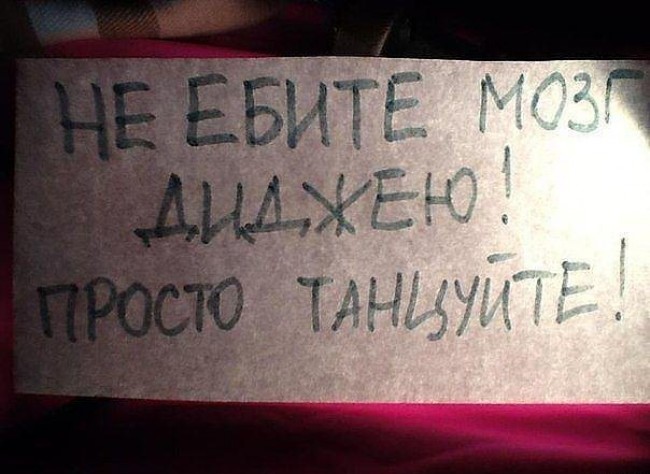 НЕ ЕБИТЕ МОЗГ
ДИДЖЕЮ!
ПРОСТО ТАНЦУЙТЕ!